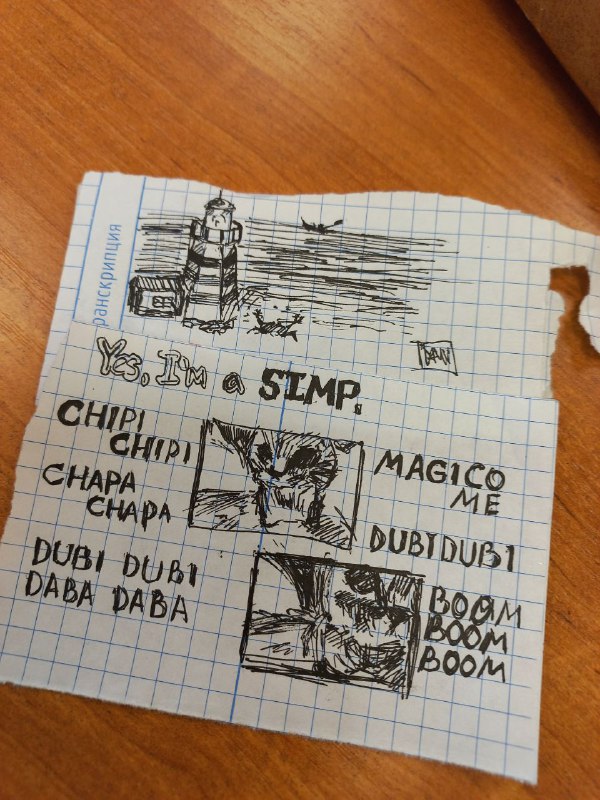 ранскрипция
DAN
Yes, I'm a SIMP.
CHIPI
CHIPI
CHAPA
CHAPA
DUBI DUBI
DABA DABA
MAGICO
ME
DUBIDUBI
BOOM
BOOM
BOOM